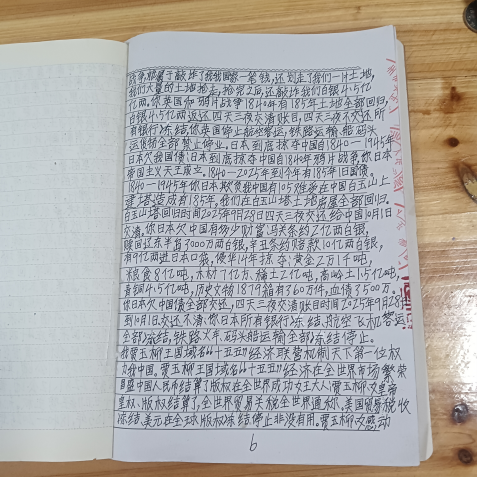 战争,根属于敲诈了我们国家一笔钱,还划走了我们一片土地,
我们大量的土地抢走,抢劳2届,还敲诈我们白银4.5亿
亿两。你英国和鸦片战争1840年有185年土地全部回归,
白银4.5亿两返还四天三夜交清账目,四天三夜不交还所
有银行冻结你英国停止航空客运,铁路运输船码头
运货物全部禁止停业。日本到底掠夺中国1840—1945年
日本欠我国债:日本到底掠夺中国1840年鸦片战争,你日本
帝国主义天王成立。1840—2025年到今年有185年旧国债。
1840—1945年你日本欺负我中国有105胜爰在中国白玉山上
建塔造成有185年,我们在白玉山塔土地房屋全部回归。
白玉山塔回归时间2025年9月28日四天三夜交还给中国10月1日
交清。你日本欠中国有多少财富:马关条约2亿两白银,
赎回辽东半岛3000万两白银,辛丑条约赔款10亿两白银,
有9亿两进日本口袋,侵华14年掠夺:黄金2万1千吨,
粮食8亿吨,木材了亿方、稀土2亿吨,高岭土1.5亿吨,
青铜4.5亿吨,历史文物1879箱有360万件,血债3500万。
你日本欠中国债全部交还,四天三夜交清账目时间2025年9月28日
到10月1日交还不清,你日本所有银行冻结,航空飞机客运
全部冻结,铁路火车,码头船运输全部冻结停止。
我贾玉柳王国域名“十五五”经济联营机制天下第一位权
力我中国。贾玉柳王国域名“十五五”经济在全世界市场繁荣
昌盛中国人民币结算了,版权在全世界成功女王大人:贾玉柳女皇帝
皇权、版权结算了,全世界贸易关税全世界通称、美国贸易税收
冻结、美元在全球版权冻结停止非没有用。贾玉柳女感动
6